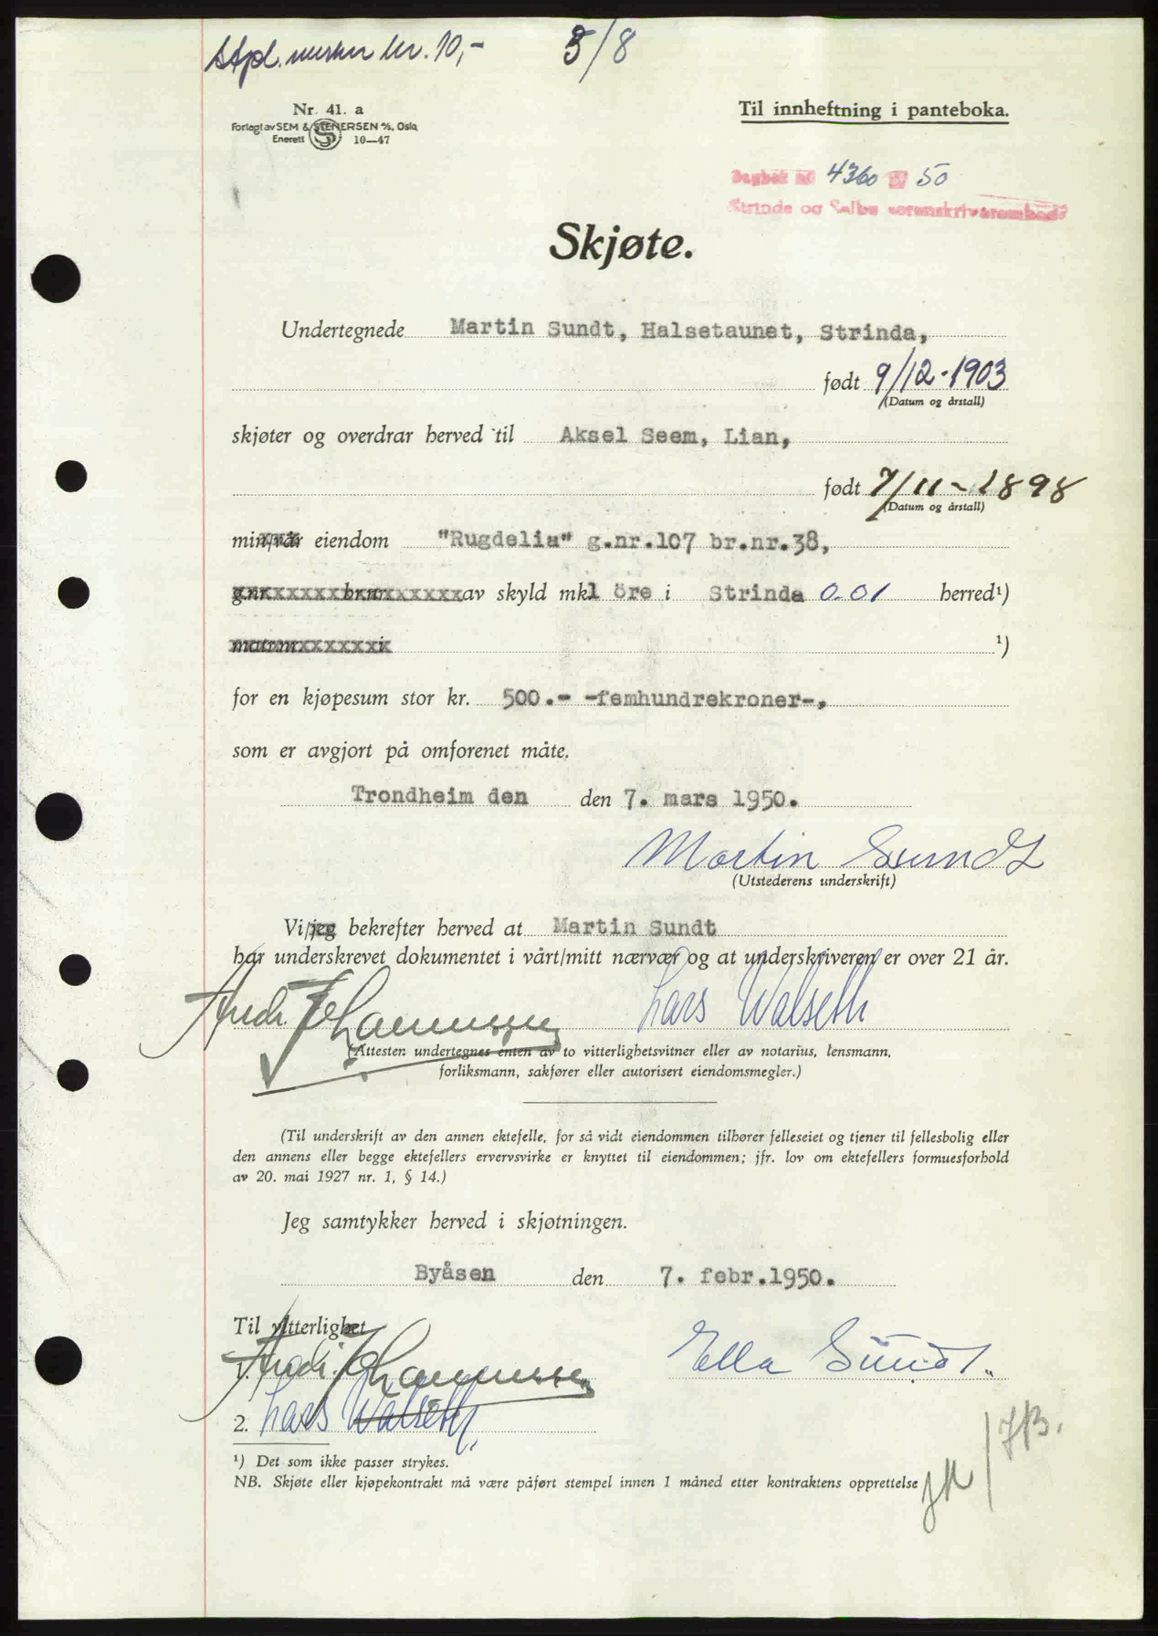 Stpl. merker kr. 10,- 3/8
Nr. 41. a
Forlagt av SEM & STENERSEN A/S, Oslo
Enerett 10—47
Til innheftning i panteboka.
Dagbok nr 4360 19 50
Strinda og Selbu sorenskriverembede
Skjøte.
Undertegnede Martin Sundt, Halsetaunet, Strinda,
født 9/12-1903
(Datum og årstall)
skjøter og overdrar herved til Aksel Seem, Lian,
født 7/11-1898
(Datum og årstall)
min/vår eiendom "Rugdelia" g.nr.107 br.nr.38,
g.nr.xxxxxxbr.nr.xxxxxxav skyld mk1 öre i Strinda 0-01 herred¹)
matr.nr.xxxxxxi ¹)
for en kjøpesum stor kr. 500.- -femhundrekroner-,
som er avgjort på omforenet måte.
Trondheim den den 7. mars 1950.
Martin Sundt
(Utstederens underskrift)
Vi/jeg bekrefter herved at Martin Sundt
har underskrevet dokumentet i vårt/mitt nærvær og at underskriveren er over 21 år.
Andr. Johannessen Lars Walseth
(Attesten undertegnes enten av to vitterlighetsvitner eller av notarius, lensmann,
forliksmann, sakfører eller autorisert eiendomsmegler.)
(Til underskrift av den annen ektefelle, for så vidt eiendommen tilhører felleseiet og tjener til fellesbolig eller
den annens eller begge ektefellers ervervsvirke er knyttet til eiendommen; jfr. lov om ektefellers formuesforhold
av 20. mai 1927 nr. 1, § 14.)
Jeg samtykker herved i skjøtningen.
Byåsen den 7. febr.1950.
Til vitterlighet
1. Andr. Johannessen Ella Sundt.
2. Lars Walseth.
¹) Det som ikke passer strykes.
NB. Skjøte eller kjøpekontrakt må være påført stempel innen 1 måned etter kontraktens opprettelse